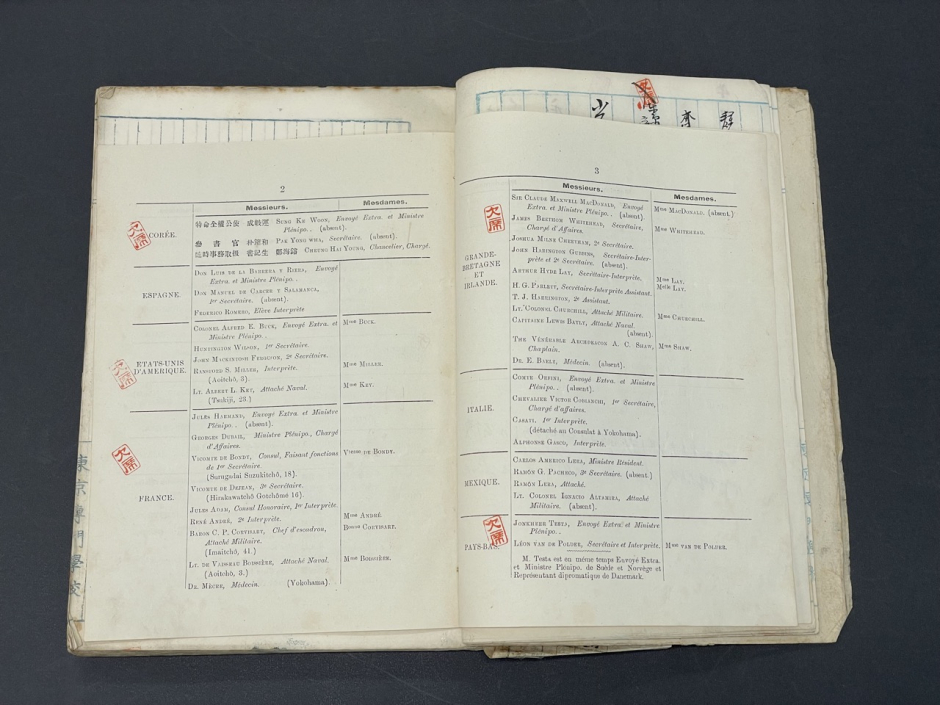 2
Messieurs. Mesdames.
欠席
CORÉE.
特命全權公使 成岐運 SUNG KE WOON, Envoyé Extra. et Ministre
Plénipo.. (absent).
參書官 朴鏞和 PAK YONG WHA, Secrétaire. (absent).
CHEUNG HAI YOUNG, Chancelier, Chargé.
ESPAGNE.
DON LUIS DE LA BARRERA Y RIERA, Envoyé
Extra. et Ministre Plénipo..
DON MANUEL DE CARCER Y SALAMANCA,
1er Secrétaire. (absent).
FEDERICO ROMERO, Elève Interprète
ETATS-UNIS
D'AMERIQUE.
欠席
COLONEL ALFRED E. BUCK, Envoyé Extra. et Mme BUCK.
Ministre Plénipo..
HUNTINGTON WILSON, 1er Secrétaire.
JOHN MACKINTOSH FERGUSON, 2e Secrétaire.
RANSFORD S. MILLER, Interprète. Mme MILLER.
(Aoitchô, 3).
LT. ALBERT L. KEY, Attaché Naval. Mme KEY.
(Tsukiji, 23.)
欠席
FRANCE.
JULES HARMAND, Envoyé Extra et Ministre
Plénipo.. (absent).
GEORGES DUBAIL, Ministre Plénipo., Chargé
d'Affaires.
VICOMTE DE BONDY, Consul, Faisant fonctions Vtesse DE BONDY.
de 1er Secrétaire.
(Surugadai Suzukitchô, 18).
VICOMTE DE DEJEAN, 3e Secrétaire.
(Hirakawatchô Gotchômé 16).
JULES ADAM, Consul Honoraire, 1er Interprète.
RENÉ ANDRÉ, 2e Interprète. Mme ANDRÉ.
BARON C. P. CORVISART, Chef d'escadron, Bonne CORVISART.
Attaché Militaire.
(Imaitchô, 41.)
LT. DE VAISSEAU BOISSIÈRE, Attaché Naval. Mme BOISSIÈRE.
(Aoitchô, 3.)
DR. MÈCRE, Médecin. (Yokohama).
東京專門學校
3
Messieurs. Mesdames.
欠席
GRANDE-
BRETAGNE
ET
IRLANDE.
SIR CLAUDE MAXWELL MACDONALD, Envoyé Mme MACDONALD. (absent)
Extra. et Ministre Plénipo.. (absent).
JAMES BEETHOM WHITEHEAD, Secrétaire, Mme WHITEHEAD.
Chargé d'Affaires.
JOSHUA MILNE CHEETHAM, 2e Secrétaire.
JOHN HARINGTON GUBBINS, Secrétaire-Inter-
prète et 2e Secrétaire. (absent).
ARTHUR HYDE LAY, Secrétaire-Interprète. Mme LAY.
Melle LAY.
H. G. PARLETT, Secrétaire-Interprète Assistant.
T. J. HARRINGTON, 2e Assistant.
LT. COLONEL CHURCHILL, Attaché Militaire. Mme CHURCHILL.
CAPITAINE LEWIS BAYLY, Attaché Naval.
(absent).
THE VÉNÉRABLE ARCHDEACON A. C. SHAW, Mme SHAW.
Chaplain.
DR. E. BAELZ, Médecin. (absent).
ITALIE.
COMTE ORFINI, Envoyé Extra. et Ministre
Plénipo.. (absent).
CHEVALIER VICTOR COBIANCHI, 1er Secrétaire,
Chargé d'affaires.
CASATI, 1er Interprète.
(détaché au Consulat à Yokohama).
ALPHONSE GASCO, Interprète.
MEXIQUE.
CARLOS AMERICO LERA, Ministre Résident.
RAMÓN G. PACHECO, 3e Secrétaire. (absent.)
RAMÓN LERA, Attaché
LT. COLONEL IGNACIO ALTAMIRA, Attaché
Militaire. (absent).
欠席
PAYS-BAS.
JONKHEER TESTA, Envoyé Extra. et Ministre
Plénipo..
LÉON VAN DE POLDER, Secrétaire et Interprète. Mme VAN DE POLDER.
M. Testa est en même temps Envoyé Extra.
et Ministre Plénipo. de Suède et Norvège et
Représentant dipromatique de Danemark.